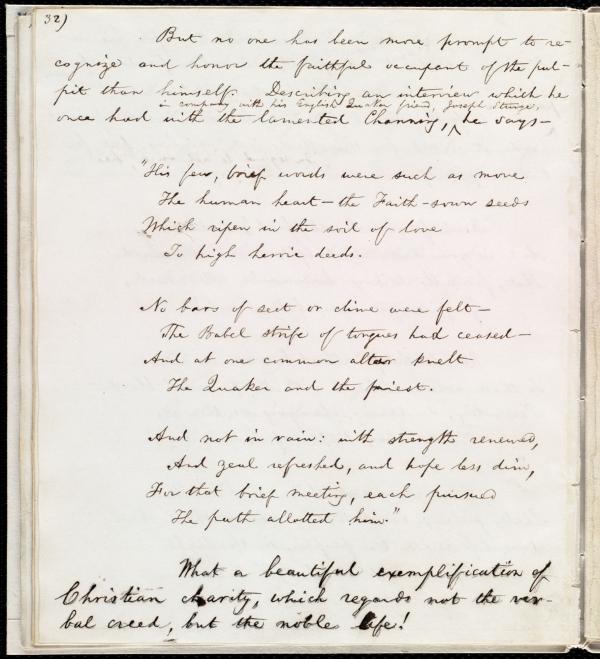 32)
But no one has been more prompt to re-
cognize and honor the faithful occupant of the pul-
pit than himself. Describing an interview which he
in company with his English Quaker friend, Joseph Sturge,
once had with the lamented Channing, ^ he says—
"His few, brief words were such as move
The human heart—the Faith-sown seeds
Which ripen in the soil of love
To high heroic deeds.
No bars of sect or clime were felt—
The Babel strife of tongues had ceased—
And at one common altar knelt
The Quaker and the priest.
And not in vain: with strength renewed,
And zeal refreshed, and hope less dim,
For that brief meeting, each pursued
The path allotted him."
What a beautiful exemplification of
Christian charity, which regards not the ver-
bal creed, but the noble life!